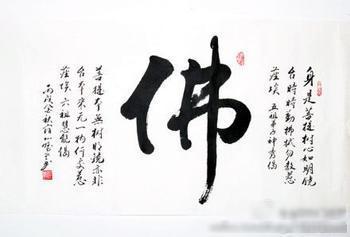 身是菩提樹心如明镜
台時時勤拂拭勿教惹
塵埃 五祖弟子神秀偈
佛
菩提本無樹明镜亦非
台本来无一物何处惹
塵埃 六祖慧能偈
丙戌年秋